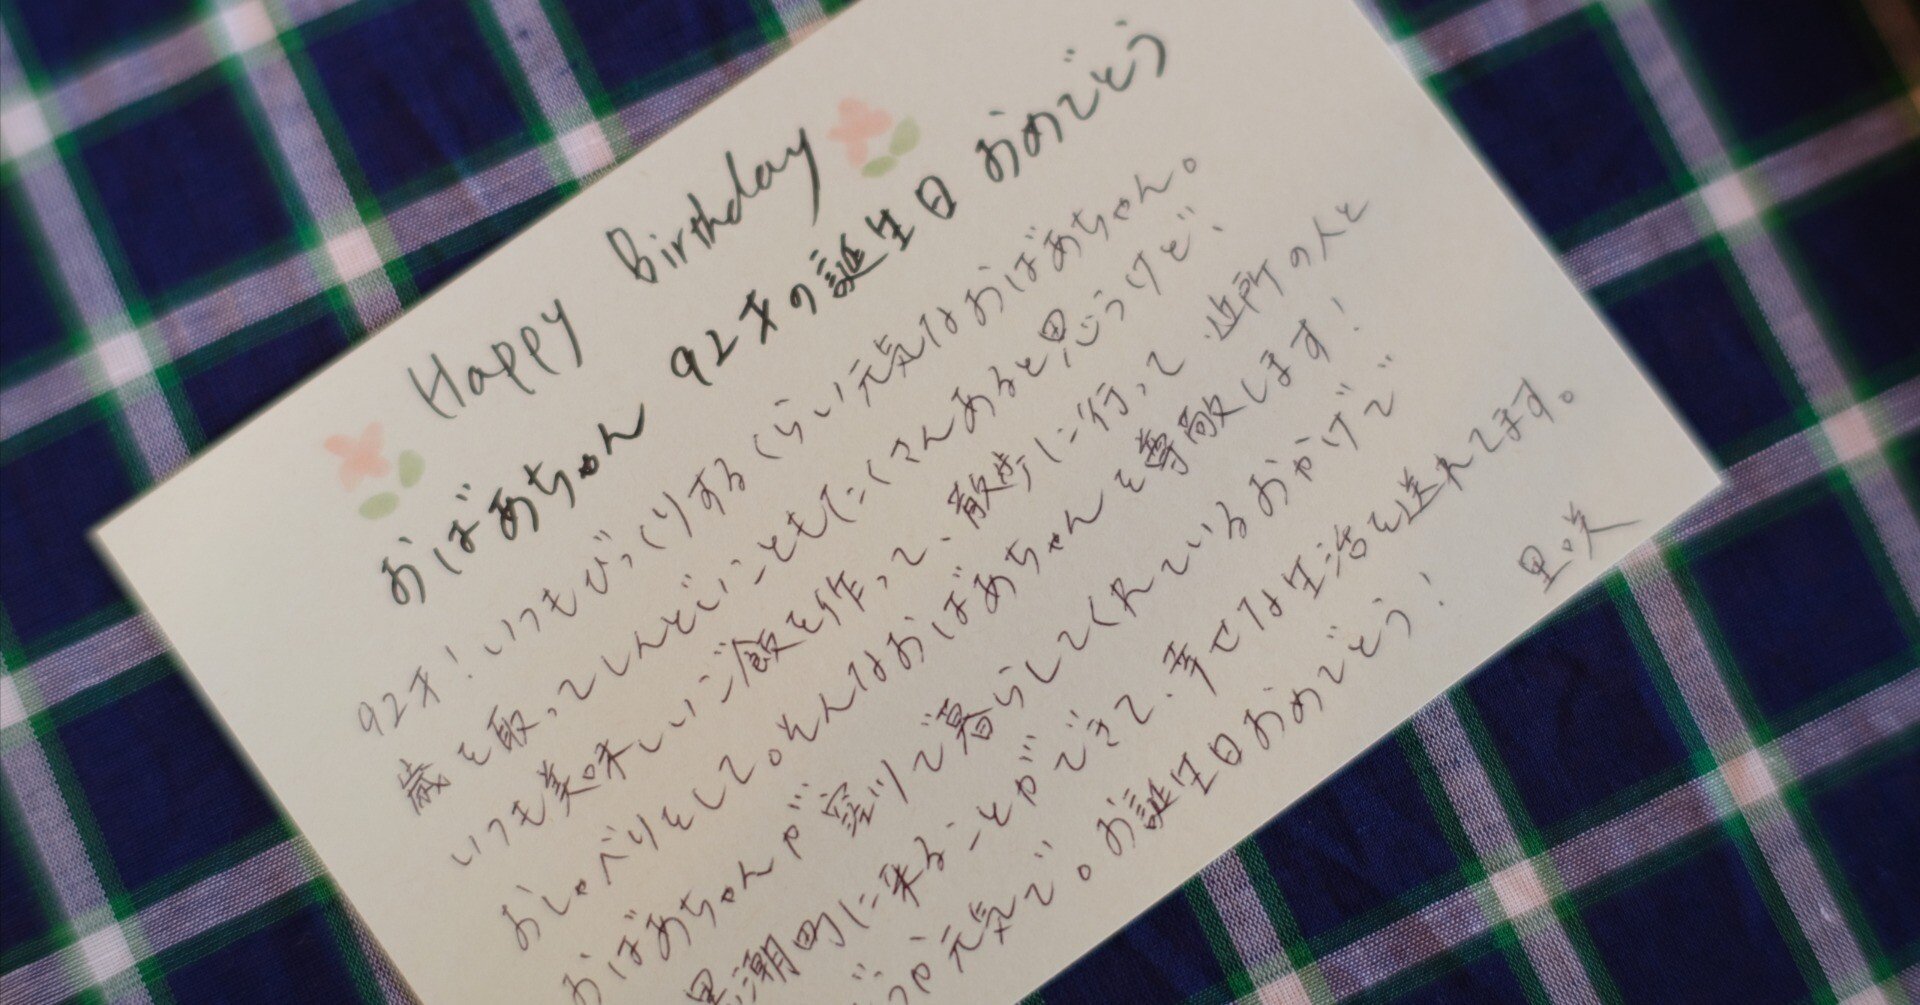 Happy Birthday
おばあちゃん 92才の誕生日 おめでとう
92才!いつもびっくりするくらい元気なおばあちゃん。
歳を取ってしんどいこともたくさんあると思うけど、
いつも美味しいご飯を作って、散歩に行って、近所の人と
おしゃべりをして。そんなおばあちゃんを尊敬します!
おばあちゃんが窪川で暮らしてくれているおかげで
黒潮町に来ることができて、幸せな生活を送れてます。
元気で。お誕生日おめでとう!
里咲